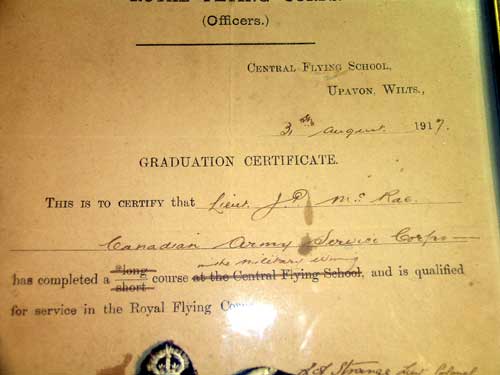 ROYAL FLYING CORPS.
(Officers.)
CENTRAL FLYING SCHOOL,
UPAVON, WILTS.,
August 1917.
GRADUATION CERTIFICATE.
THIS IS TO CERTIFY that Lieut. J.P. McRae.
Canadian Army Service Corps
in the Military Wing
has completed a *long short course at the Central Flying School, and is qualified
for service in the Royal Flying Co
Strange Lieut Colonel